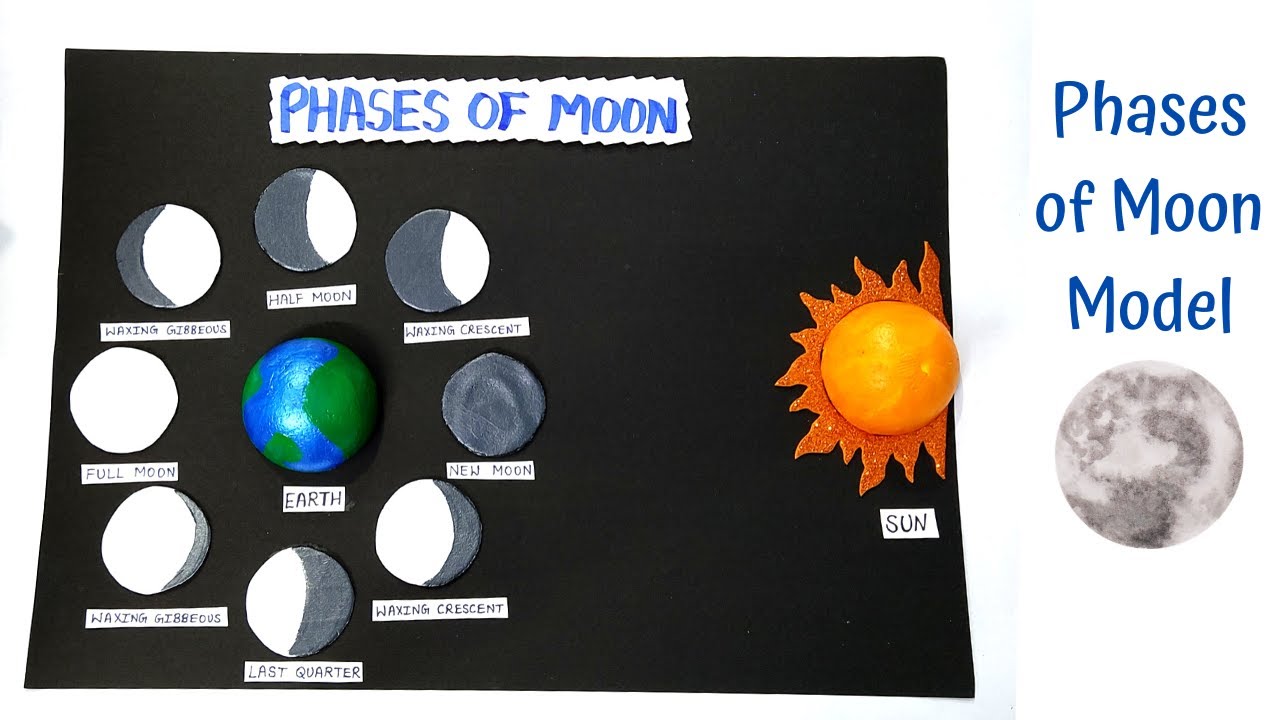 PHASES OF MOON
HALF MOON
WAXING GIBBEOUS
WAXING CRESCENT
FULL MOON
NEW MOON
EARTH
SUN
WAXING GIBBEOUS
WAXING CRESCENT
LAST QUARTER
Phases
of Moon
Model